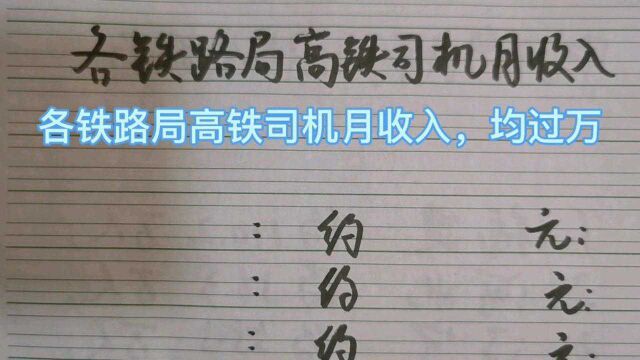 各铁路局高铁司机月收入
各铁路局高铁司机月收入，均过万
: 约 元:
: 约 元:
: 约 元: